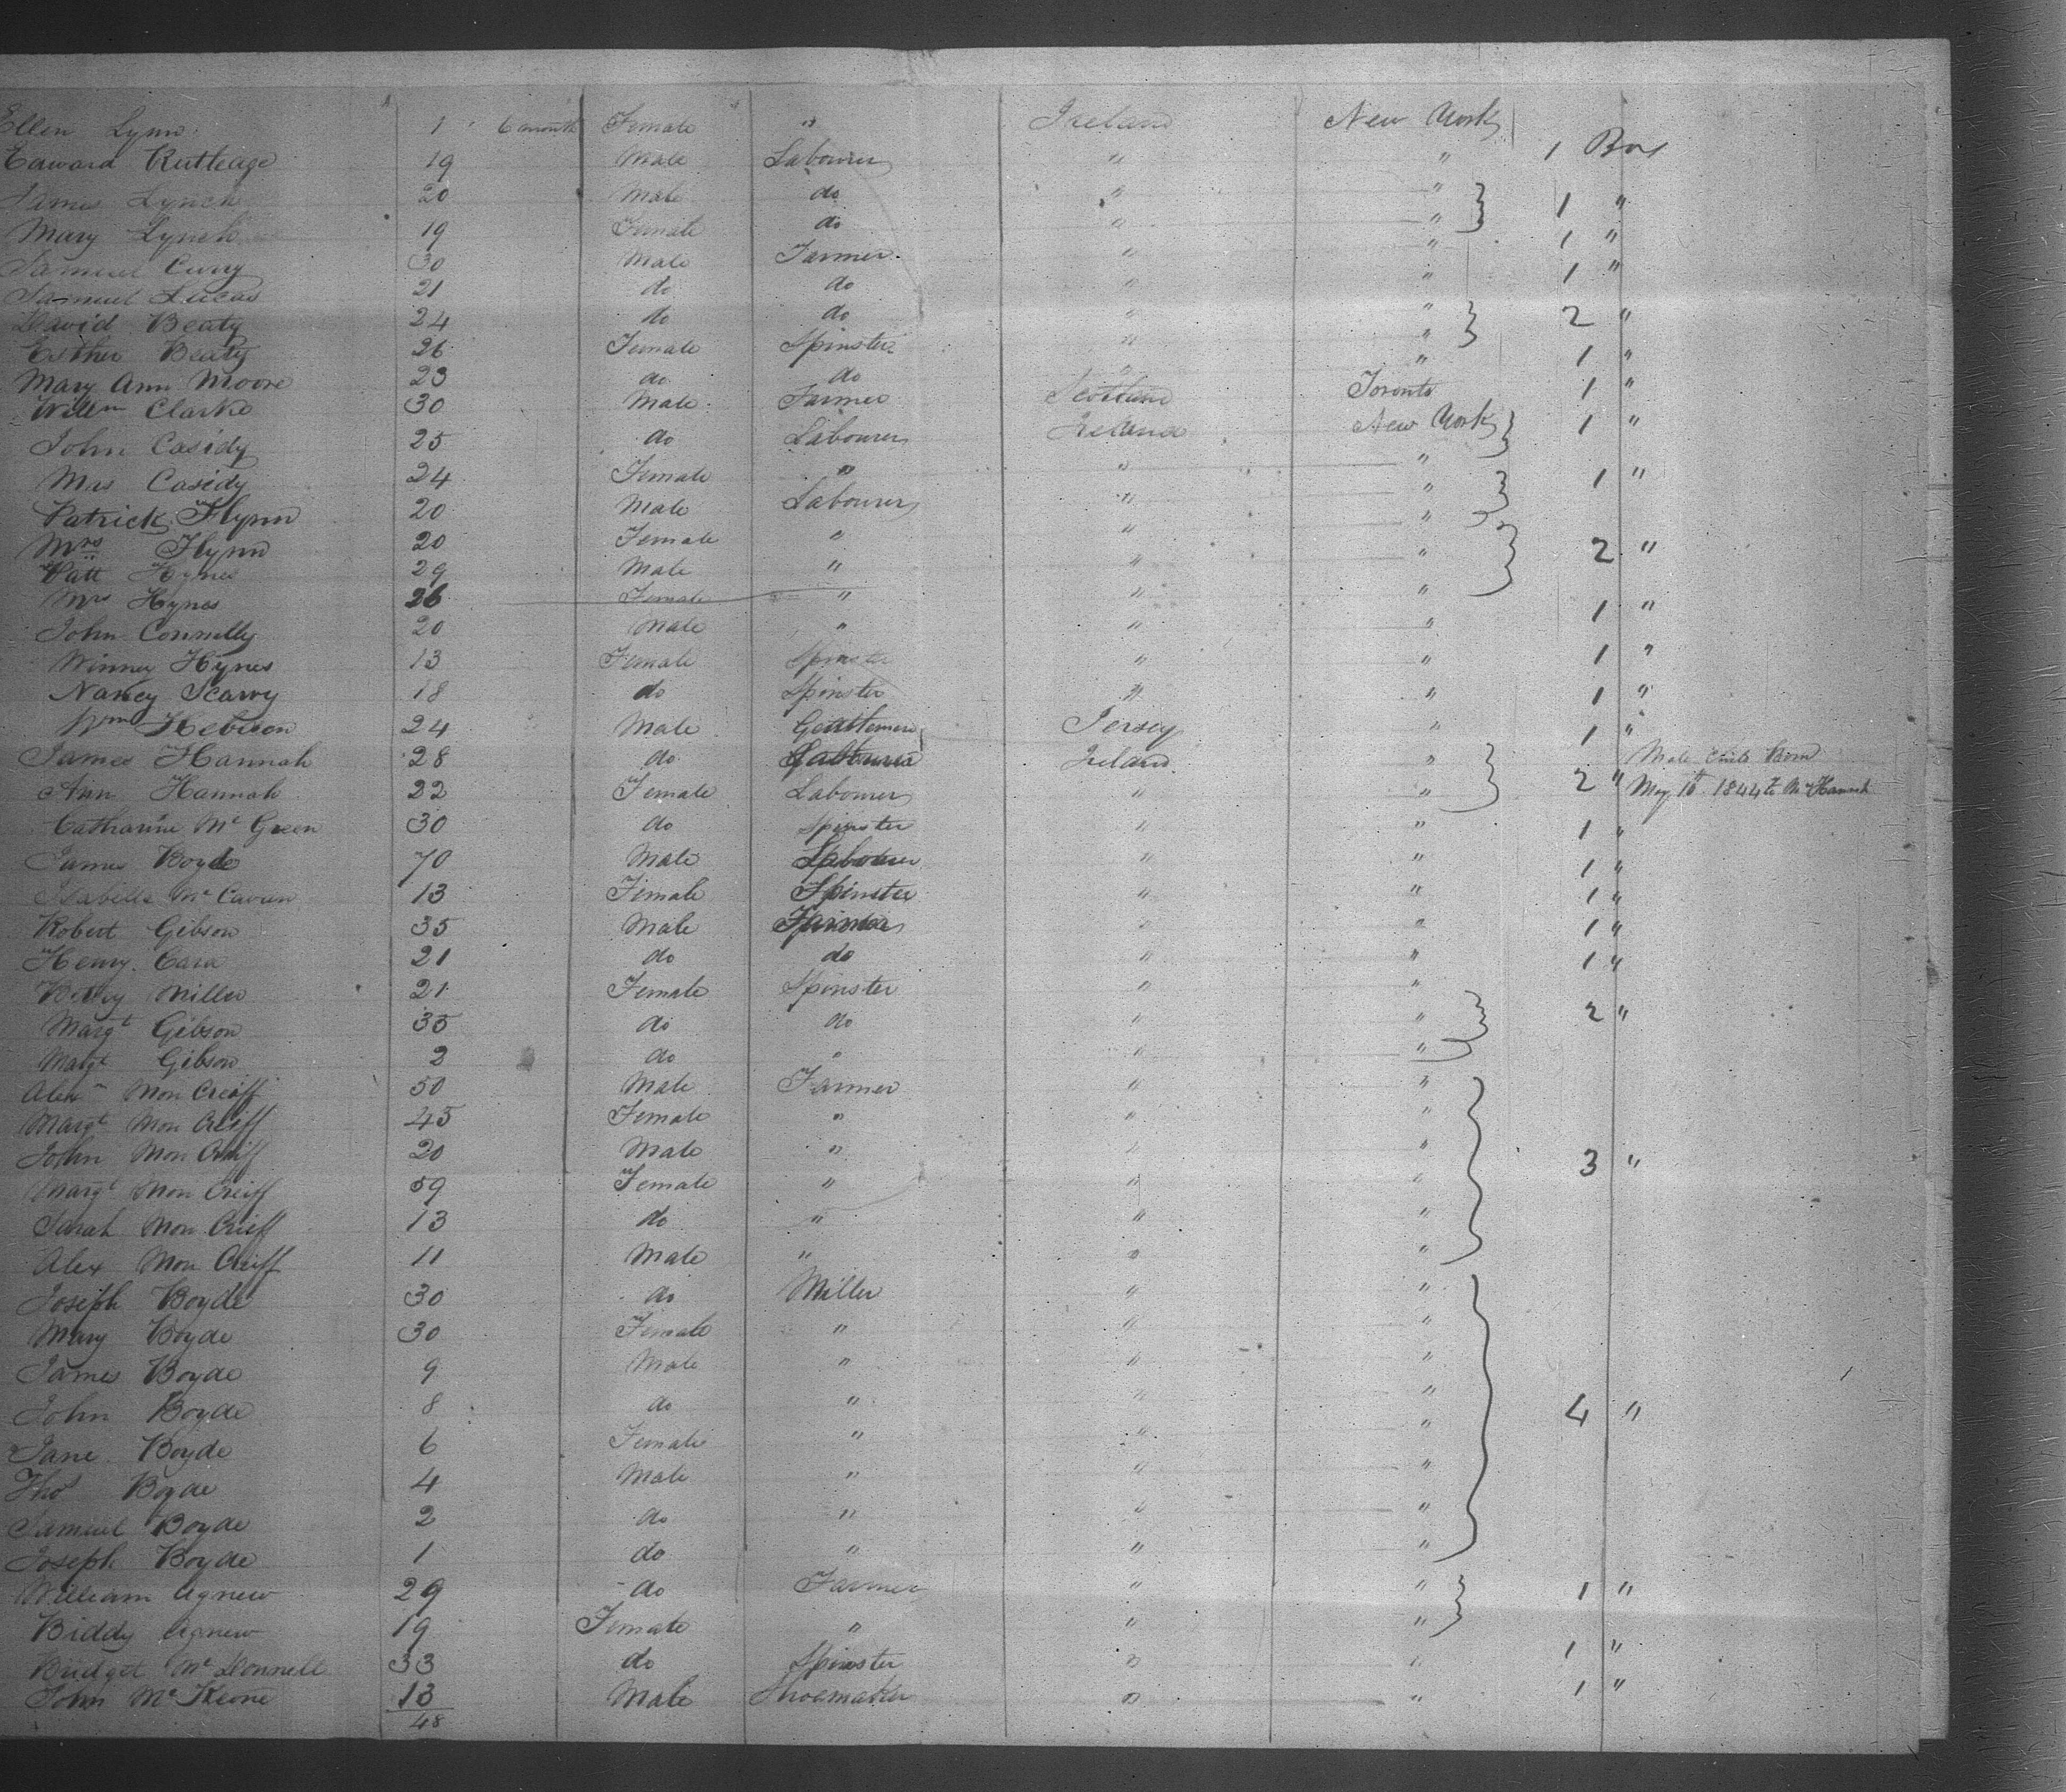 Ellen Lynn 1 6 month Female " Ireland New York
Edward Rutleage 19 Male Labourer " " 1 Box
James Lynch 20 Male do " " 1 "
Mary Lynch 19 Female do " "
Samuel Curry 30 Male Farmer " " 1 "
Samuel Lucas 21 do do " " 1 "
David Beaty 24 do do " " 2 "
Esther Beaty 26 Female Spinster " "
Mary Ann Moore 23 do do " " 1 "
Willm Clarke 30 Male Farmer Scotland Toronto 1 "
John Casidy 25 do Labourer Ireland New York 1 "
Mrs Casidy 24 Female " " "
Patrick Flynn 20 Male Labourer " " 1 "
Mrs Flynn 20 Female " " "
Patt Hynes 29 Male " " " 2 "
Mrs Hynes 26 Female " " "
John Connelly 20 Male " " " 1 "
Winney Hynes 13 Female Spinster " " 1 "
Nancy Scarry 18 do Spinster " " 1 "
Wm 24 Male Gentleman Jersey " 1 "
James Hannah 28 do Labourer Ireland " Male Child Born
Ann Hannah 22 Female Labourer " " 2 " May 16 1844 to Mrs Hannah
Catharine Mc Green 30 do Spinster " " 1 "
James Boyde 70 Male Labourer " " 1 "
Isabella Mc Cavan 13 Female Spinster " " 1 "
Robert Gibson 35 Male Farmer " " 1 "
Henry Cara 21 do do " " 1 "
Betsy Miller 21 Female Spinster " "
Margt Gibson 35 do do " " 2 "
Margt Gibson 2 do " " "
Alexr Mon Creiff 50 Male Farmer " "
Margt Mon Creiff 45 Female " " "
John Mon Creiff 20 Male " " " 3 "
Margt Mon Creiff 59 Female " " "
Sarah Mon Creiff 13 do " " "
Alex Mon Creiff 11 Male " " "
Joseph Boyde 30 do Miller " "
Mary Boyde 30 Female " " "
James Boyde 9 Male " " "
John Boyde 8 do " " " 4 "
Jane Boyde 6 Female " " "
Thos Boyde 4 Male " " "
Samuel Boyde 2 do " " "
Joseph Boyde 1 do " " "
William Agnew 29 do Farmer " " 1 "
Biddy Agnew 19 Female " " "
Bridget Mc Donnell 33 do Spinster " " 1 "
John Mc Keone 13 Male Shoemaker " " 1 "
48